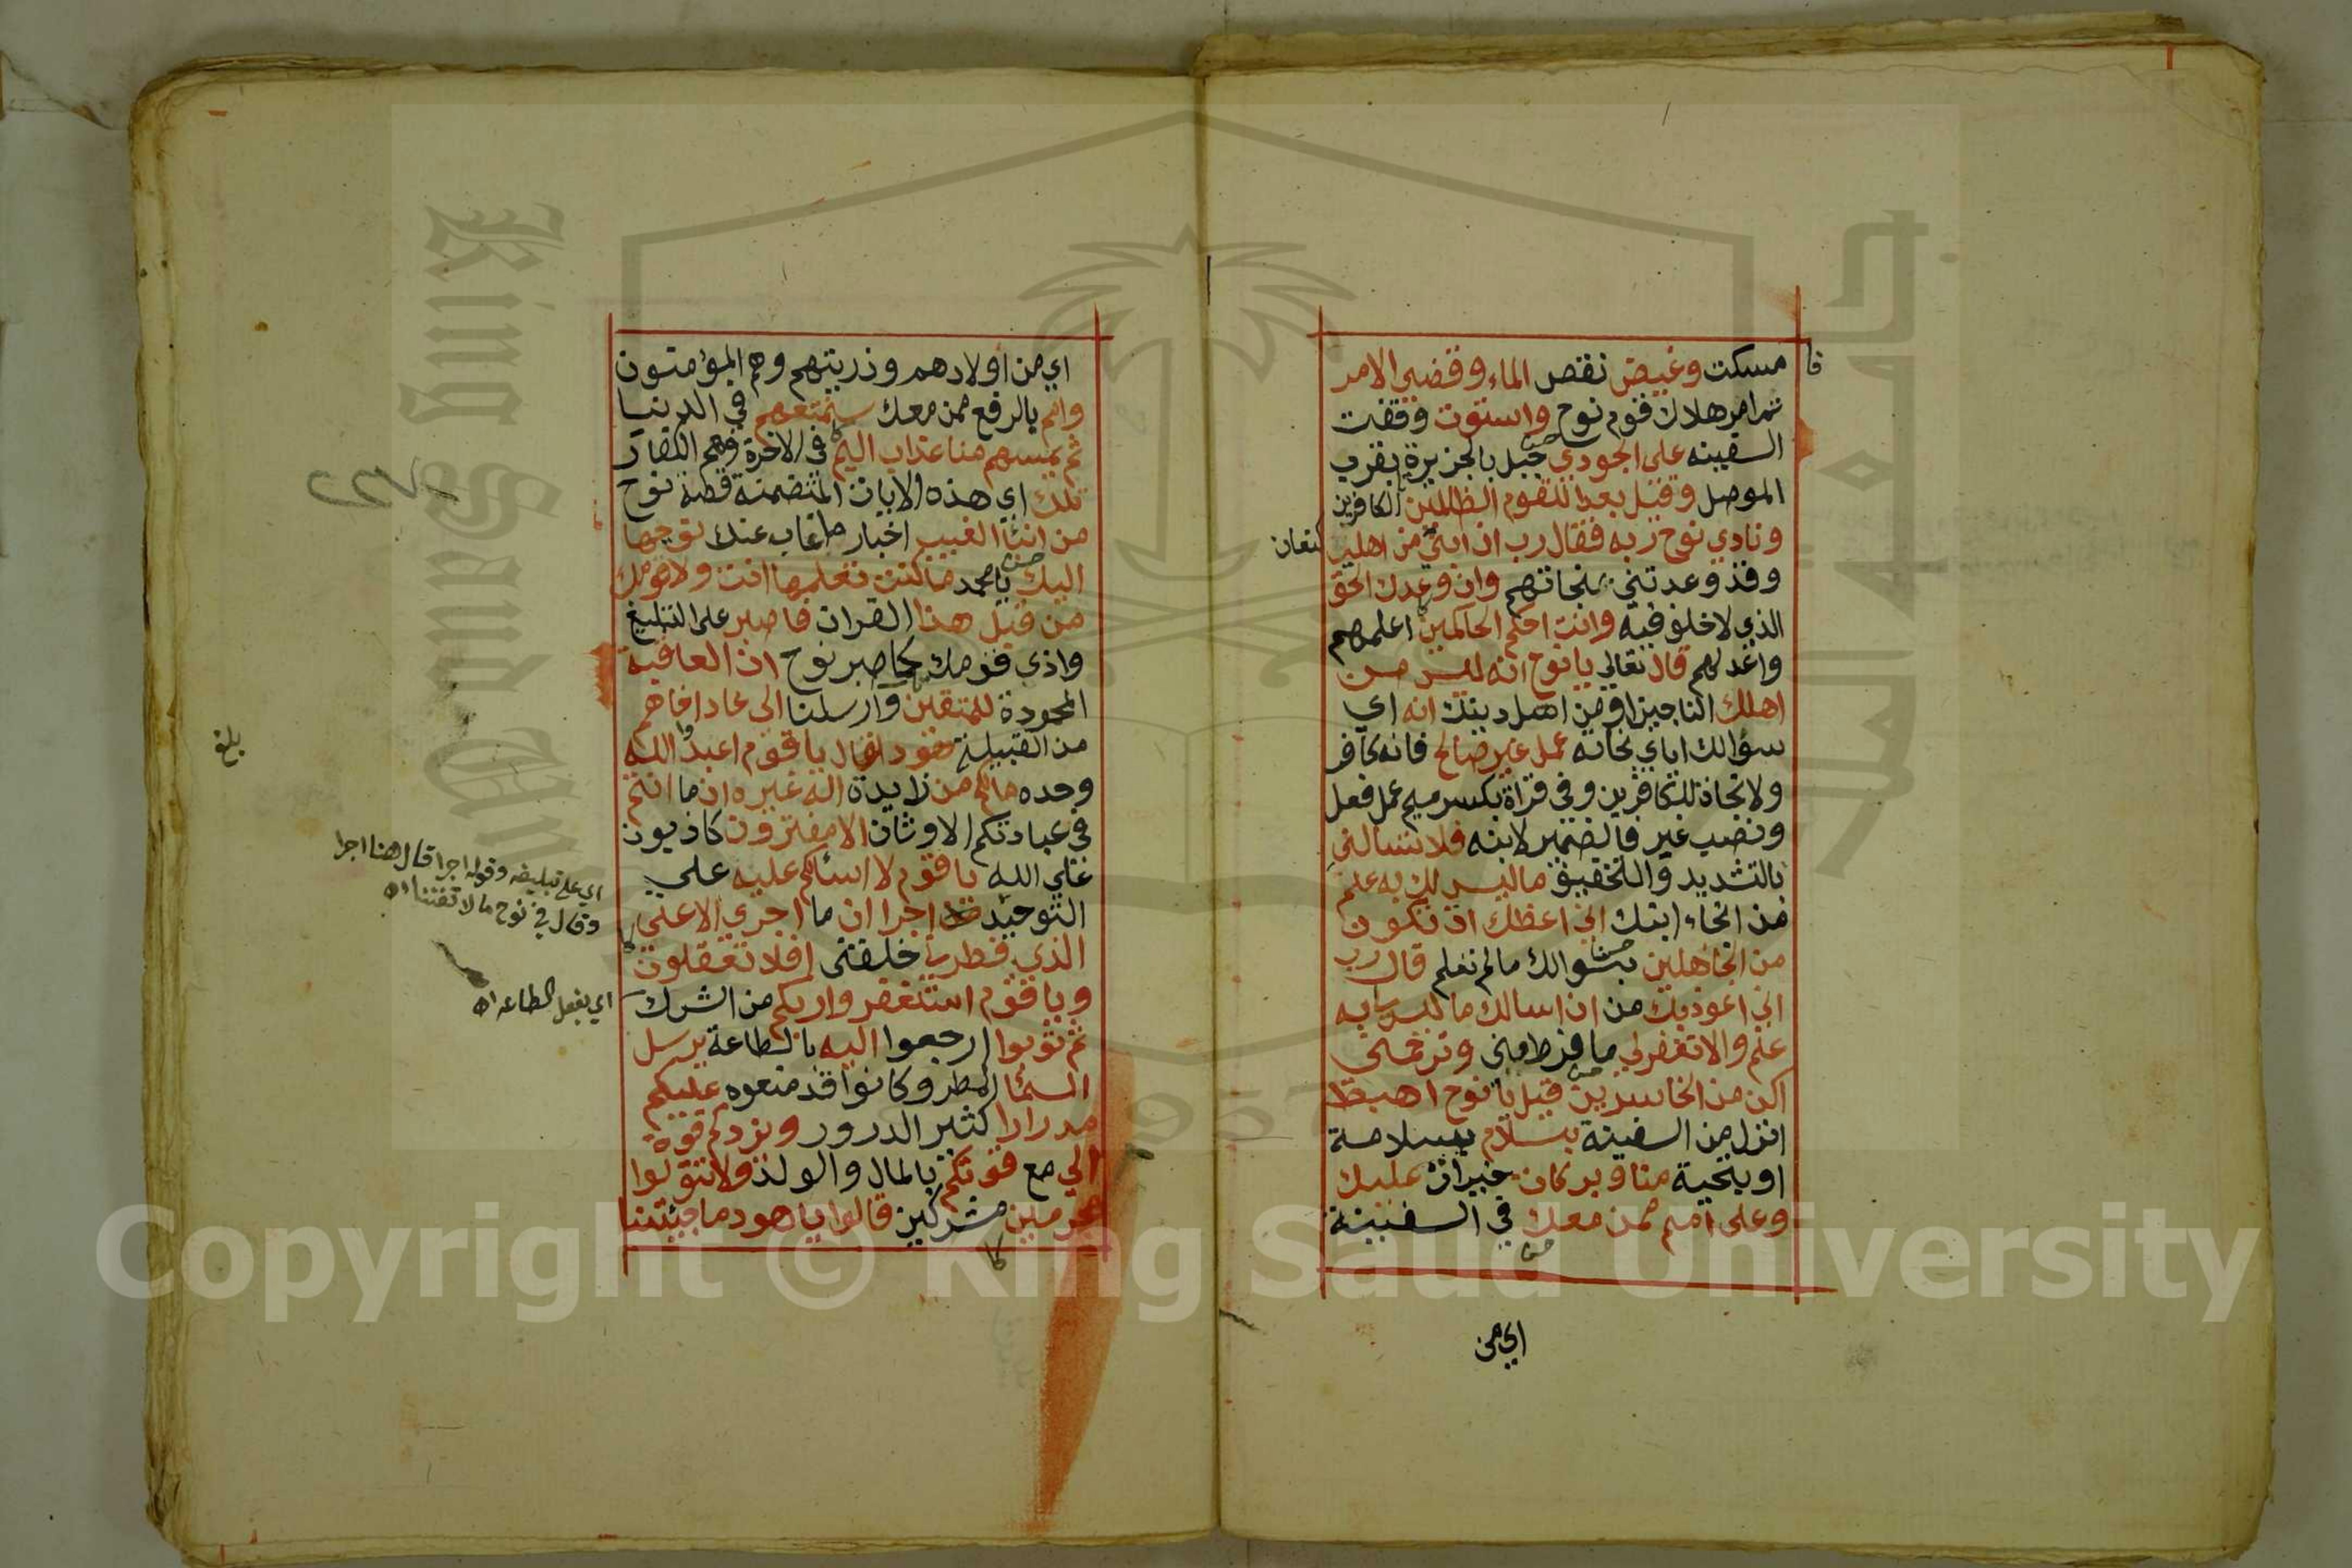 فا
مسكت وغيض نقص الماء وقضي الامر
تم امر هلاك قوم نوح واستوت وقفت
السفينه على الجودي جبل بالجزيرة بقرب
الموصل وقيل بعدا للقوم الظالمين الكافرين
ونادي نوح ربه فقال رب ان ابني من اهلي
كنعان
وقد وعدتني بنجاتهم وان وعدك الحق
الذي لا خلف فيه وانت احكم الحاكمين اعلمهم
واعدلهم قال تعالي يا نوح انه ليس من
اهلك الناجين او من اهل دينك انه اي
سؤالك اياي نجاته عمل غير صالح فانه كافر
ولا نجاة للكافرين وفي قراة بكسر ميم عمل فعل
ونصب غير فالضمير لابنه فلا تسالني
بالتشديد والتخفيف ما ليس لك به علم
من انجاء ابنك اني اعظك ان تكون
من الجاهلين بسؤالك ما لم تعلم قال رب
اني اعوذ بك من ان اسالك ما ليس لي به
علم والا تغفر لي ما فرط مني وترحمني
اكن من الخاسرين قيل يا نوح اهبط
انزل من السفينة بسلام بسلامة
او بتحية منا وبركات خيرات عليك
وعلى امم ممن معك في السفينة
اي من
اي من اولادهم وذريتهم وهم المؤمنون
وامم بالرفع ممن معك سنمتعهم في الدنيا
ثم يمسهم منا عذاب اليم في الاخرة وهم الكفار
تلك اي هذه الايات المتضمنة قصة نوح
من انباء الغيب اخبار ما غاب عنك نوحيها
اليك يا محمد ما كنت تعلمها انت ولا قومك
من قبل هذا القران فاصبر على التبليغ
واذى قومك كما صبر نوح ان العاقبة
المحمودة للمتقين وارسلنا الى عاد اخاهم
من القبيلة هودا قال يا قوم اعبدوا الله
وحده مالكم من زايدة اله غيره ان ما انتم
في عبادتكم الاوثان الا مفترون كاذبون
علي الله يا قوم لا اسئلكم عليه علي
التوحيد اجرا ان ما اجري الا على
الذي فطرني خلقني افلا تعقلون
ويا قوم استغفروا ربكم من الشرك
ثم توبوا ارجعوا اليه بالطاعة يرسل
السماء المطر وكانوا قد منعوه عليكم
مدرارا كثير الدرور ويزدكم قوة
الي مع قوتكم بالمال والولد ولا تتولوا
مجرمين مشركين قالوا يا هود ما جئتنا
بلغ
اي على تبليغه وقوله اجرا قال هنا اجرا
وقال في نوح مالا تفننا اه
اي بفعل الطاعه اه
King Saud University
1957
Copyright © King Saud University